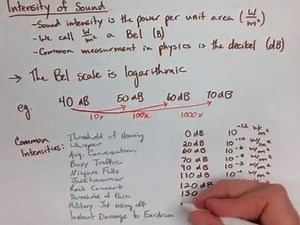 Intensity of Sound
- Sound intensity is the power per unit area (W/m²)
- We call W/m² a Bel (B)
- Common measurment in physics is the decibel (dB)
→ The Bel scale is logarithmic
eg. 40 dB 50 dB 60 dB 70 dB
10x 100x 1000x
Common Intensities:
Threshold of Hearing 0 dB 10⁻¹² W/m²
Whisper 20 dB 10⁻¹⁰ W/m²
Avg. Conversation 60 dB 10⁻⁶ W/m²
Busy Traffic 70 dB
Niagara Falls 90 dB
Jackhammer 110 dB
Rock Concert 120 dB
Threshold of Pain 130
Military Jet taking off
Instant Damage to Eardrum